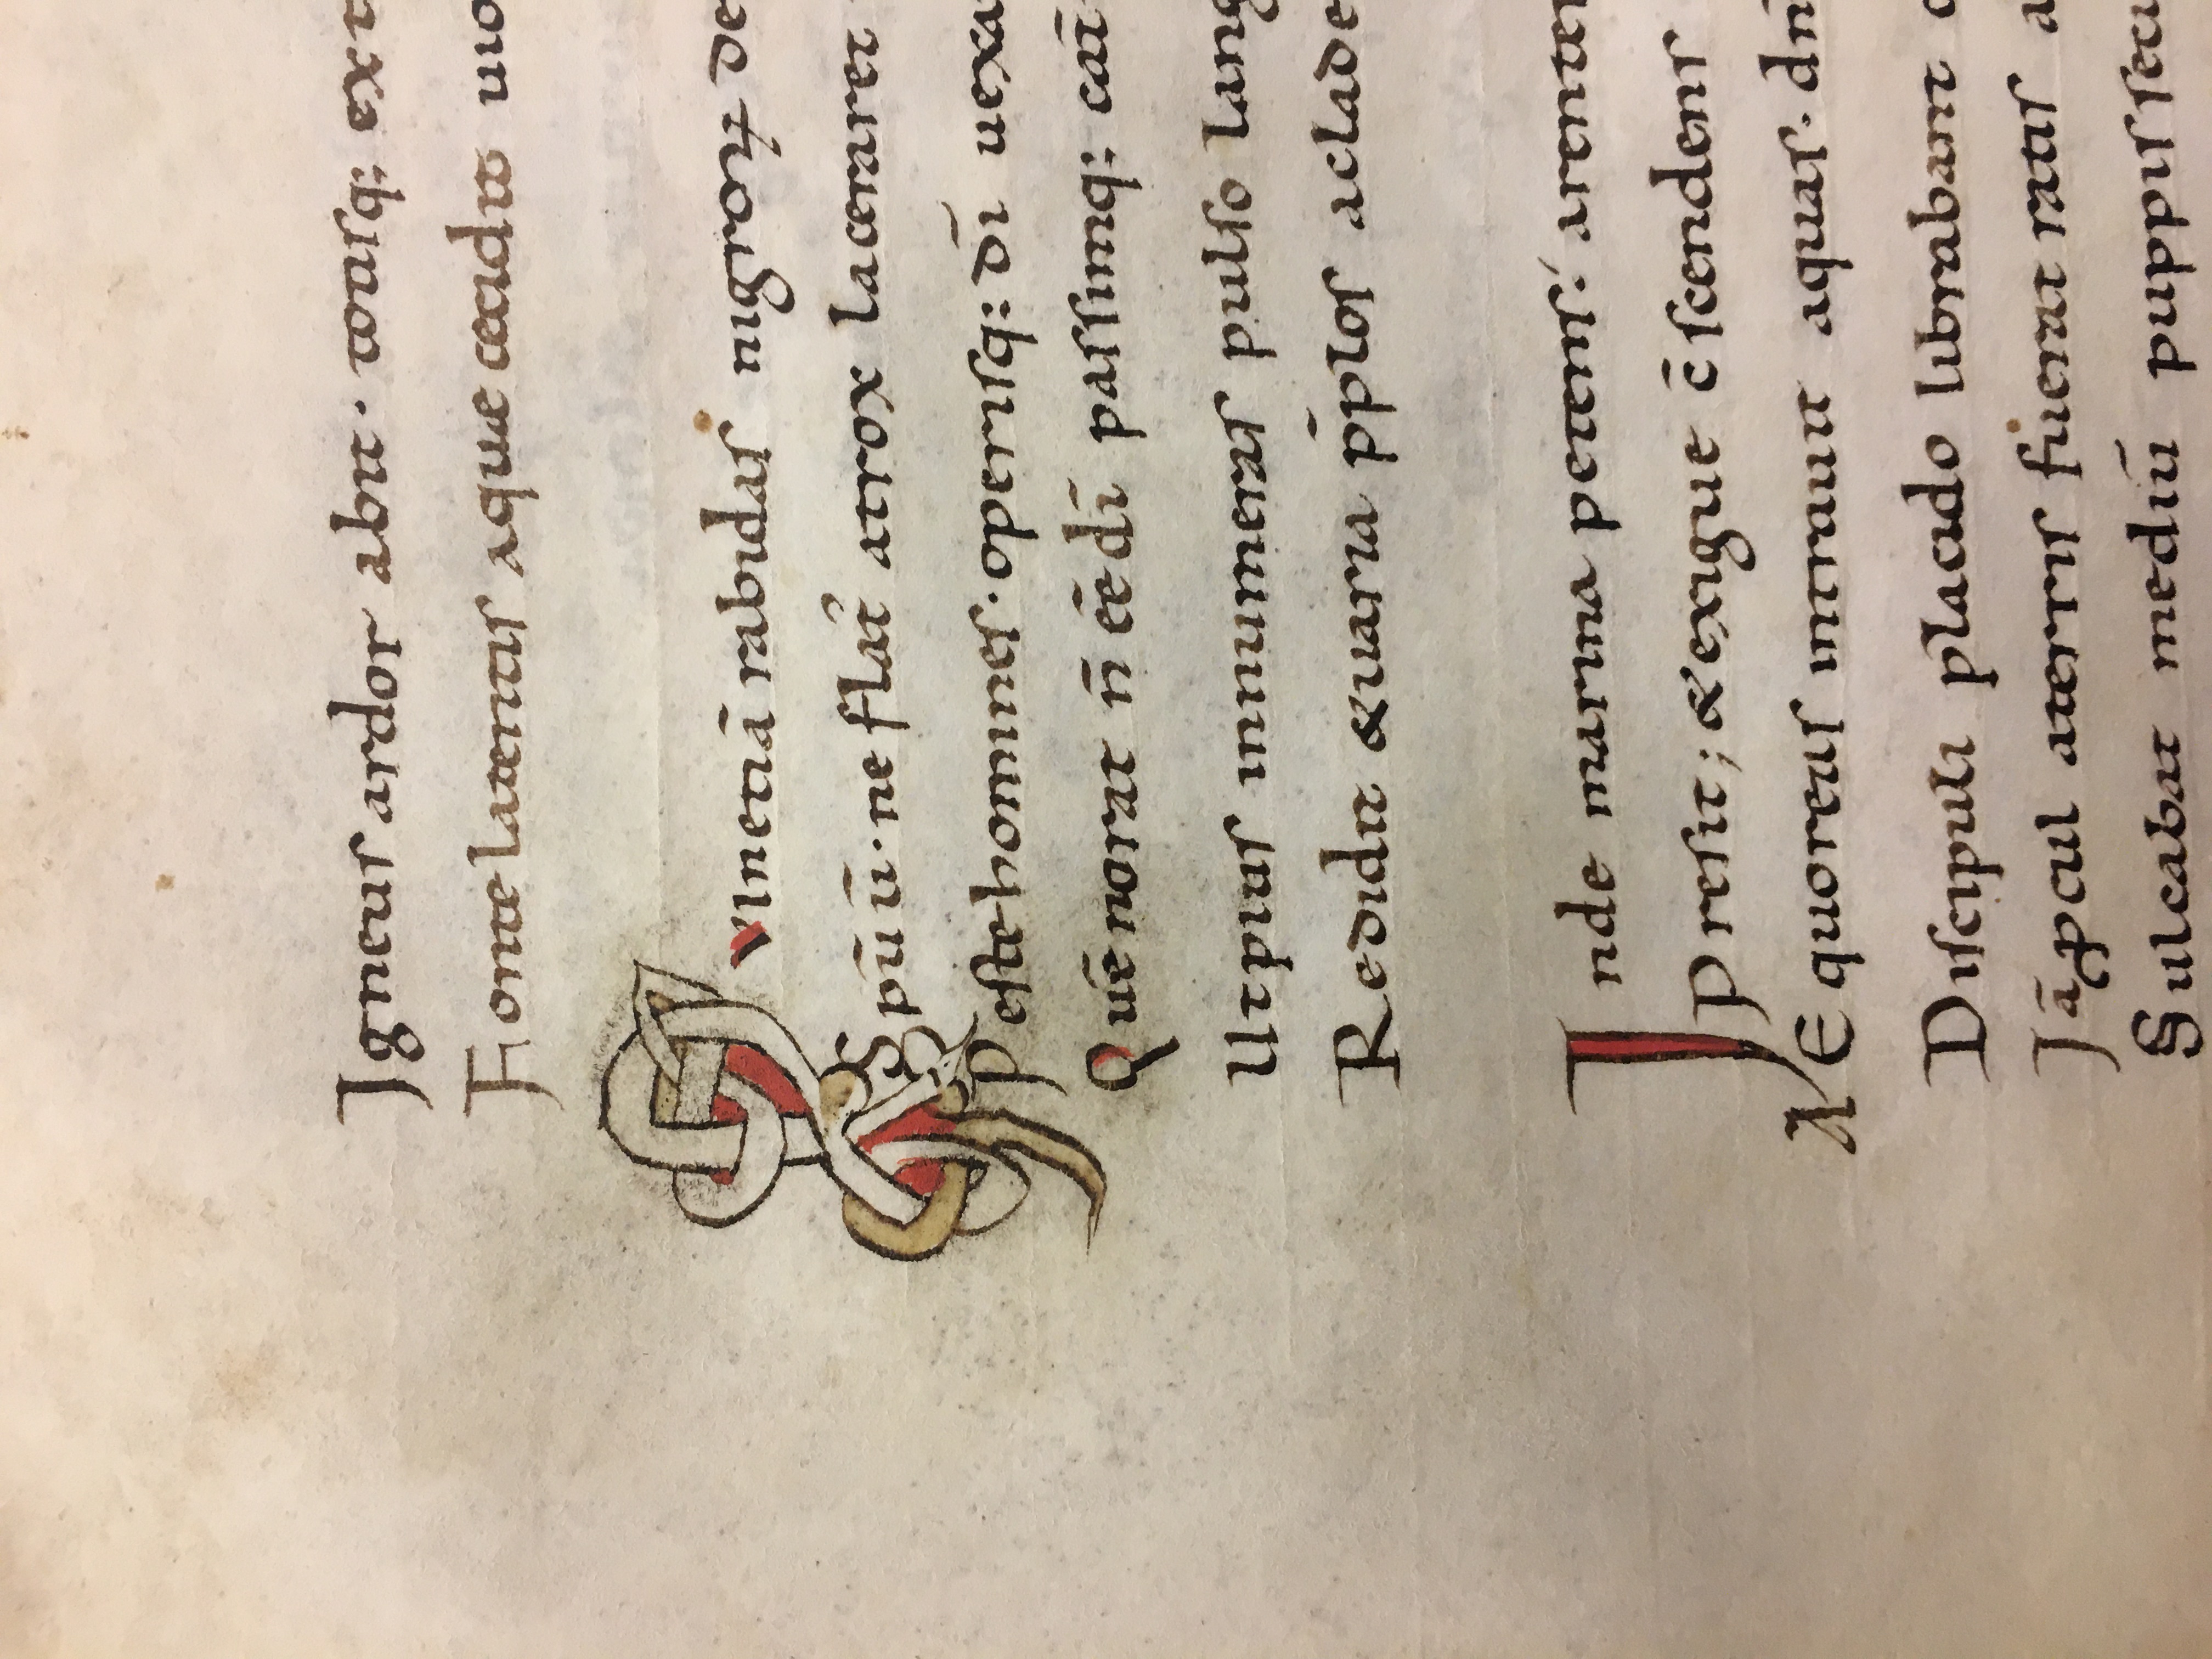 Igneus ardor abiit. totasq: ext
Fonte latentis aque cecidit uuo
Quinetiā rabidas nigroꝝ de
Spūū. ne flat᾽ atrox laceraret
Peste homines. operisq: dī uexa
Quē norat n̄ eē dī passimq: cat
Ut pius innumeras pulso lang
Reddidit & uaria p̄plos a clade
Inde marina petens. arentē
Presit; & exigue c̄scendens
Aequoreas intrauit aquas. dn̄
Discipuli placido librabant
Jā ꝓcul a terris fuerat ratis a
Sulcabat mediū puppis secu